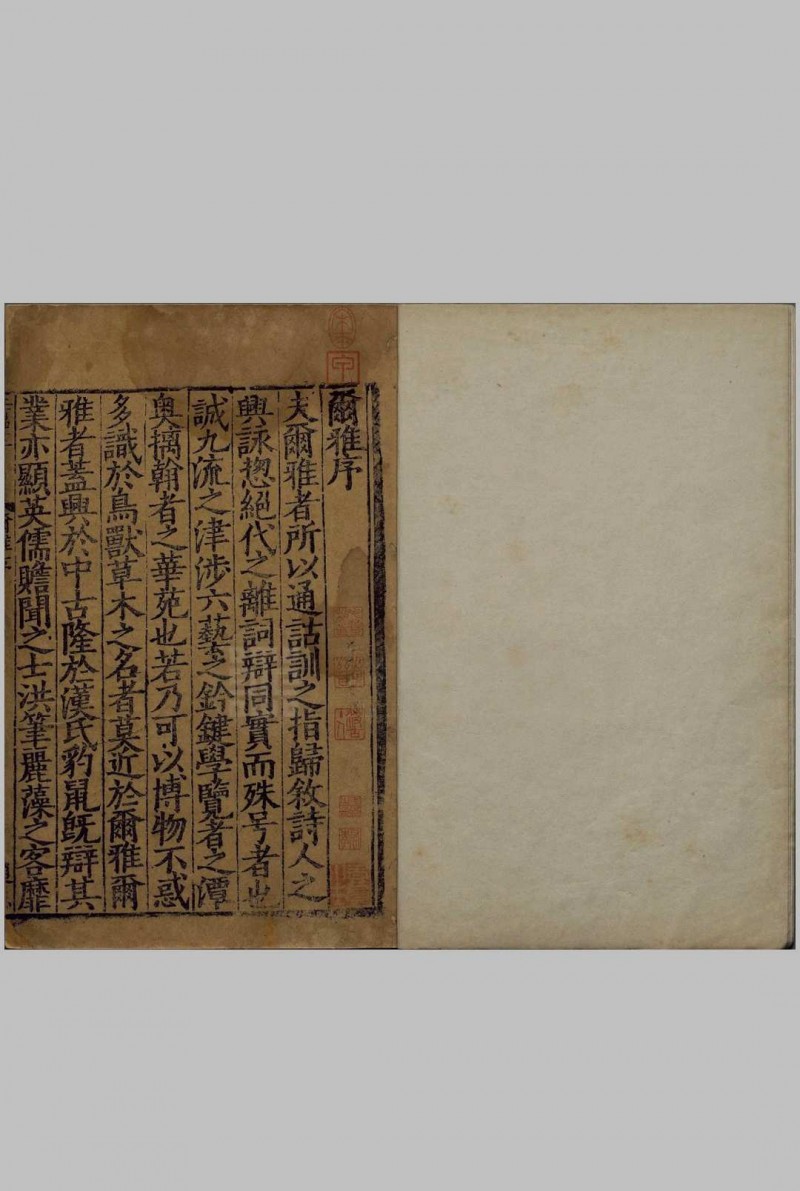 爾雅序
夫爾雅者所以通詁訓之指歸敘詩人之
興詠揔絕代之離詞辯同實而殊号者也
誠九流之津涉六藝之鈐鍵學覽者之潭
奥摛翰者之華苑也若乃可以博物不惑
多識於鳥獸草木之名者莫近於爾雅爾
雅者蓋興於中古隆於漢氏豹鼠既辯其
業亦顯英儒贍聞之士洪筆麗藻之客靡